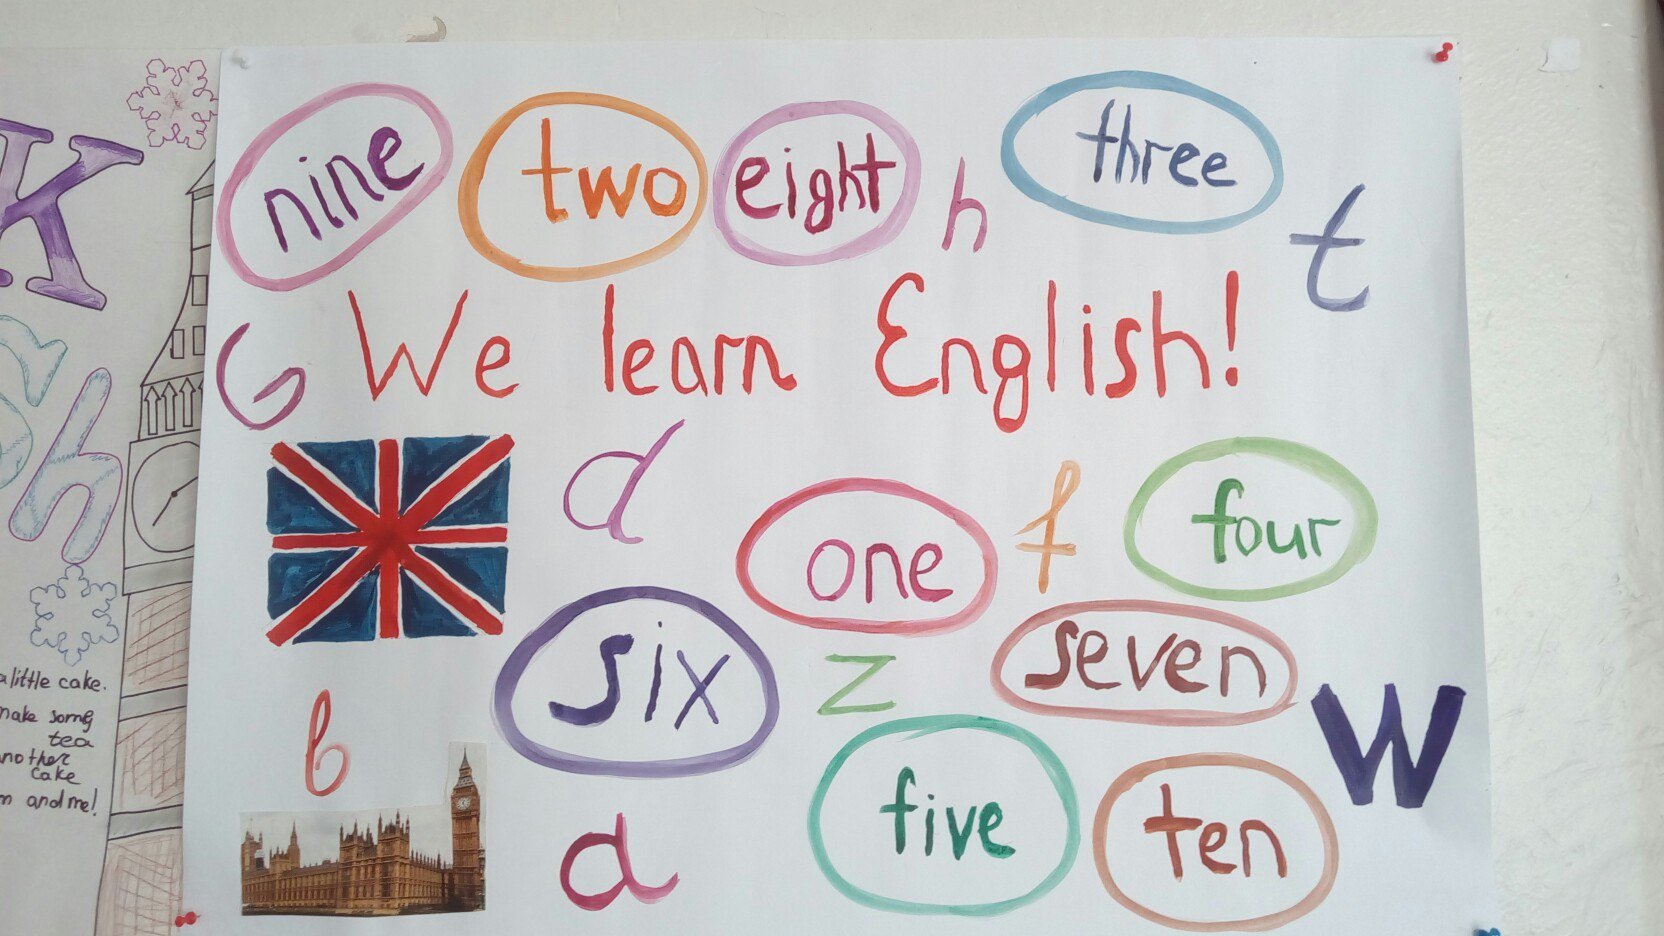 nine two eight h three t
G We learn English!
d one f four
six z seven W
b five ten
a
K
h
a little cake.
make some
tea
another
cake
and me!